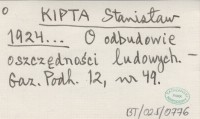 KIPTA Stanisław
1924... O odbudowie
oszczędności ludowych. –
Gaz. Podh. 12, nr 49.
BT/02.5/0776